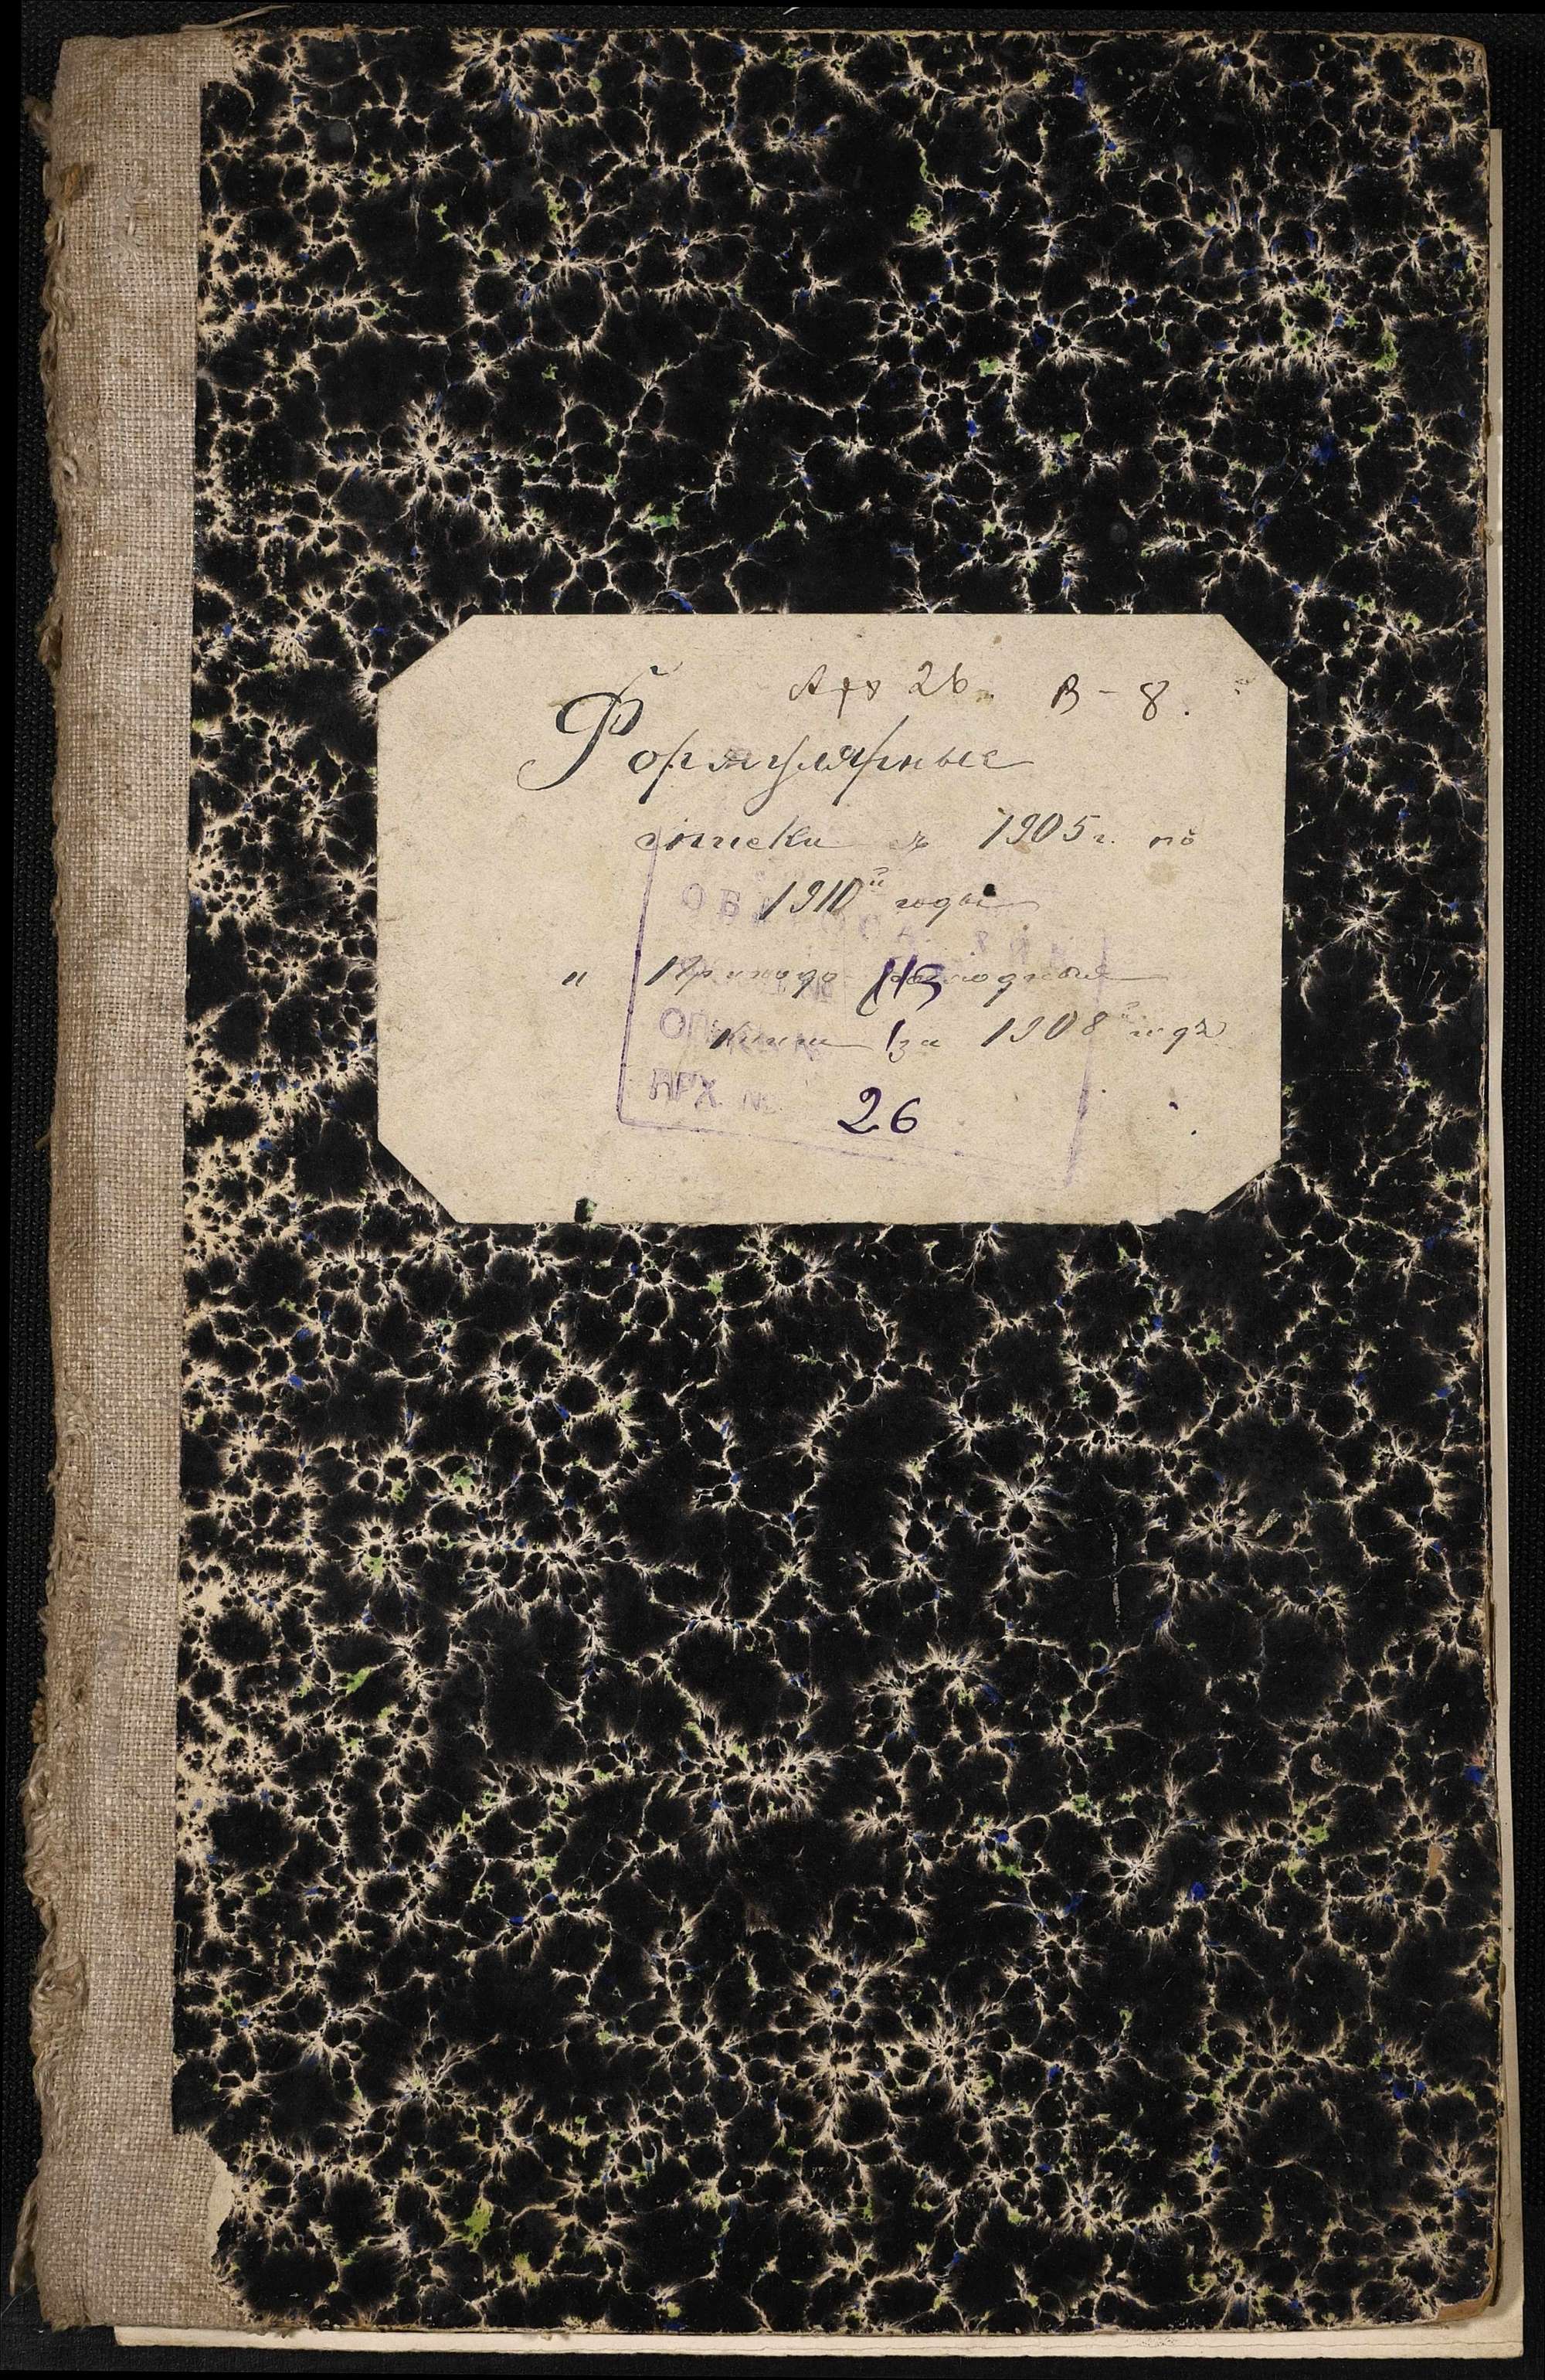 Арх 26. В - 8.
Формулярные
списки съ 1905 г. по
1910й годы
" Приходо расходные
книги за 1908й годъ
115
АРХ. №
26